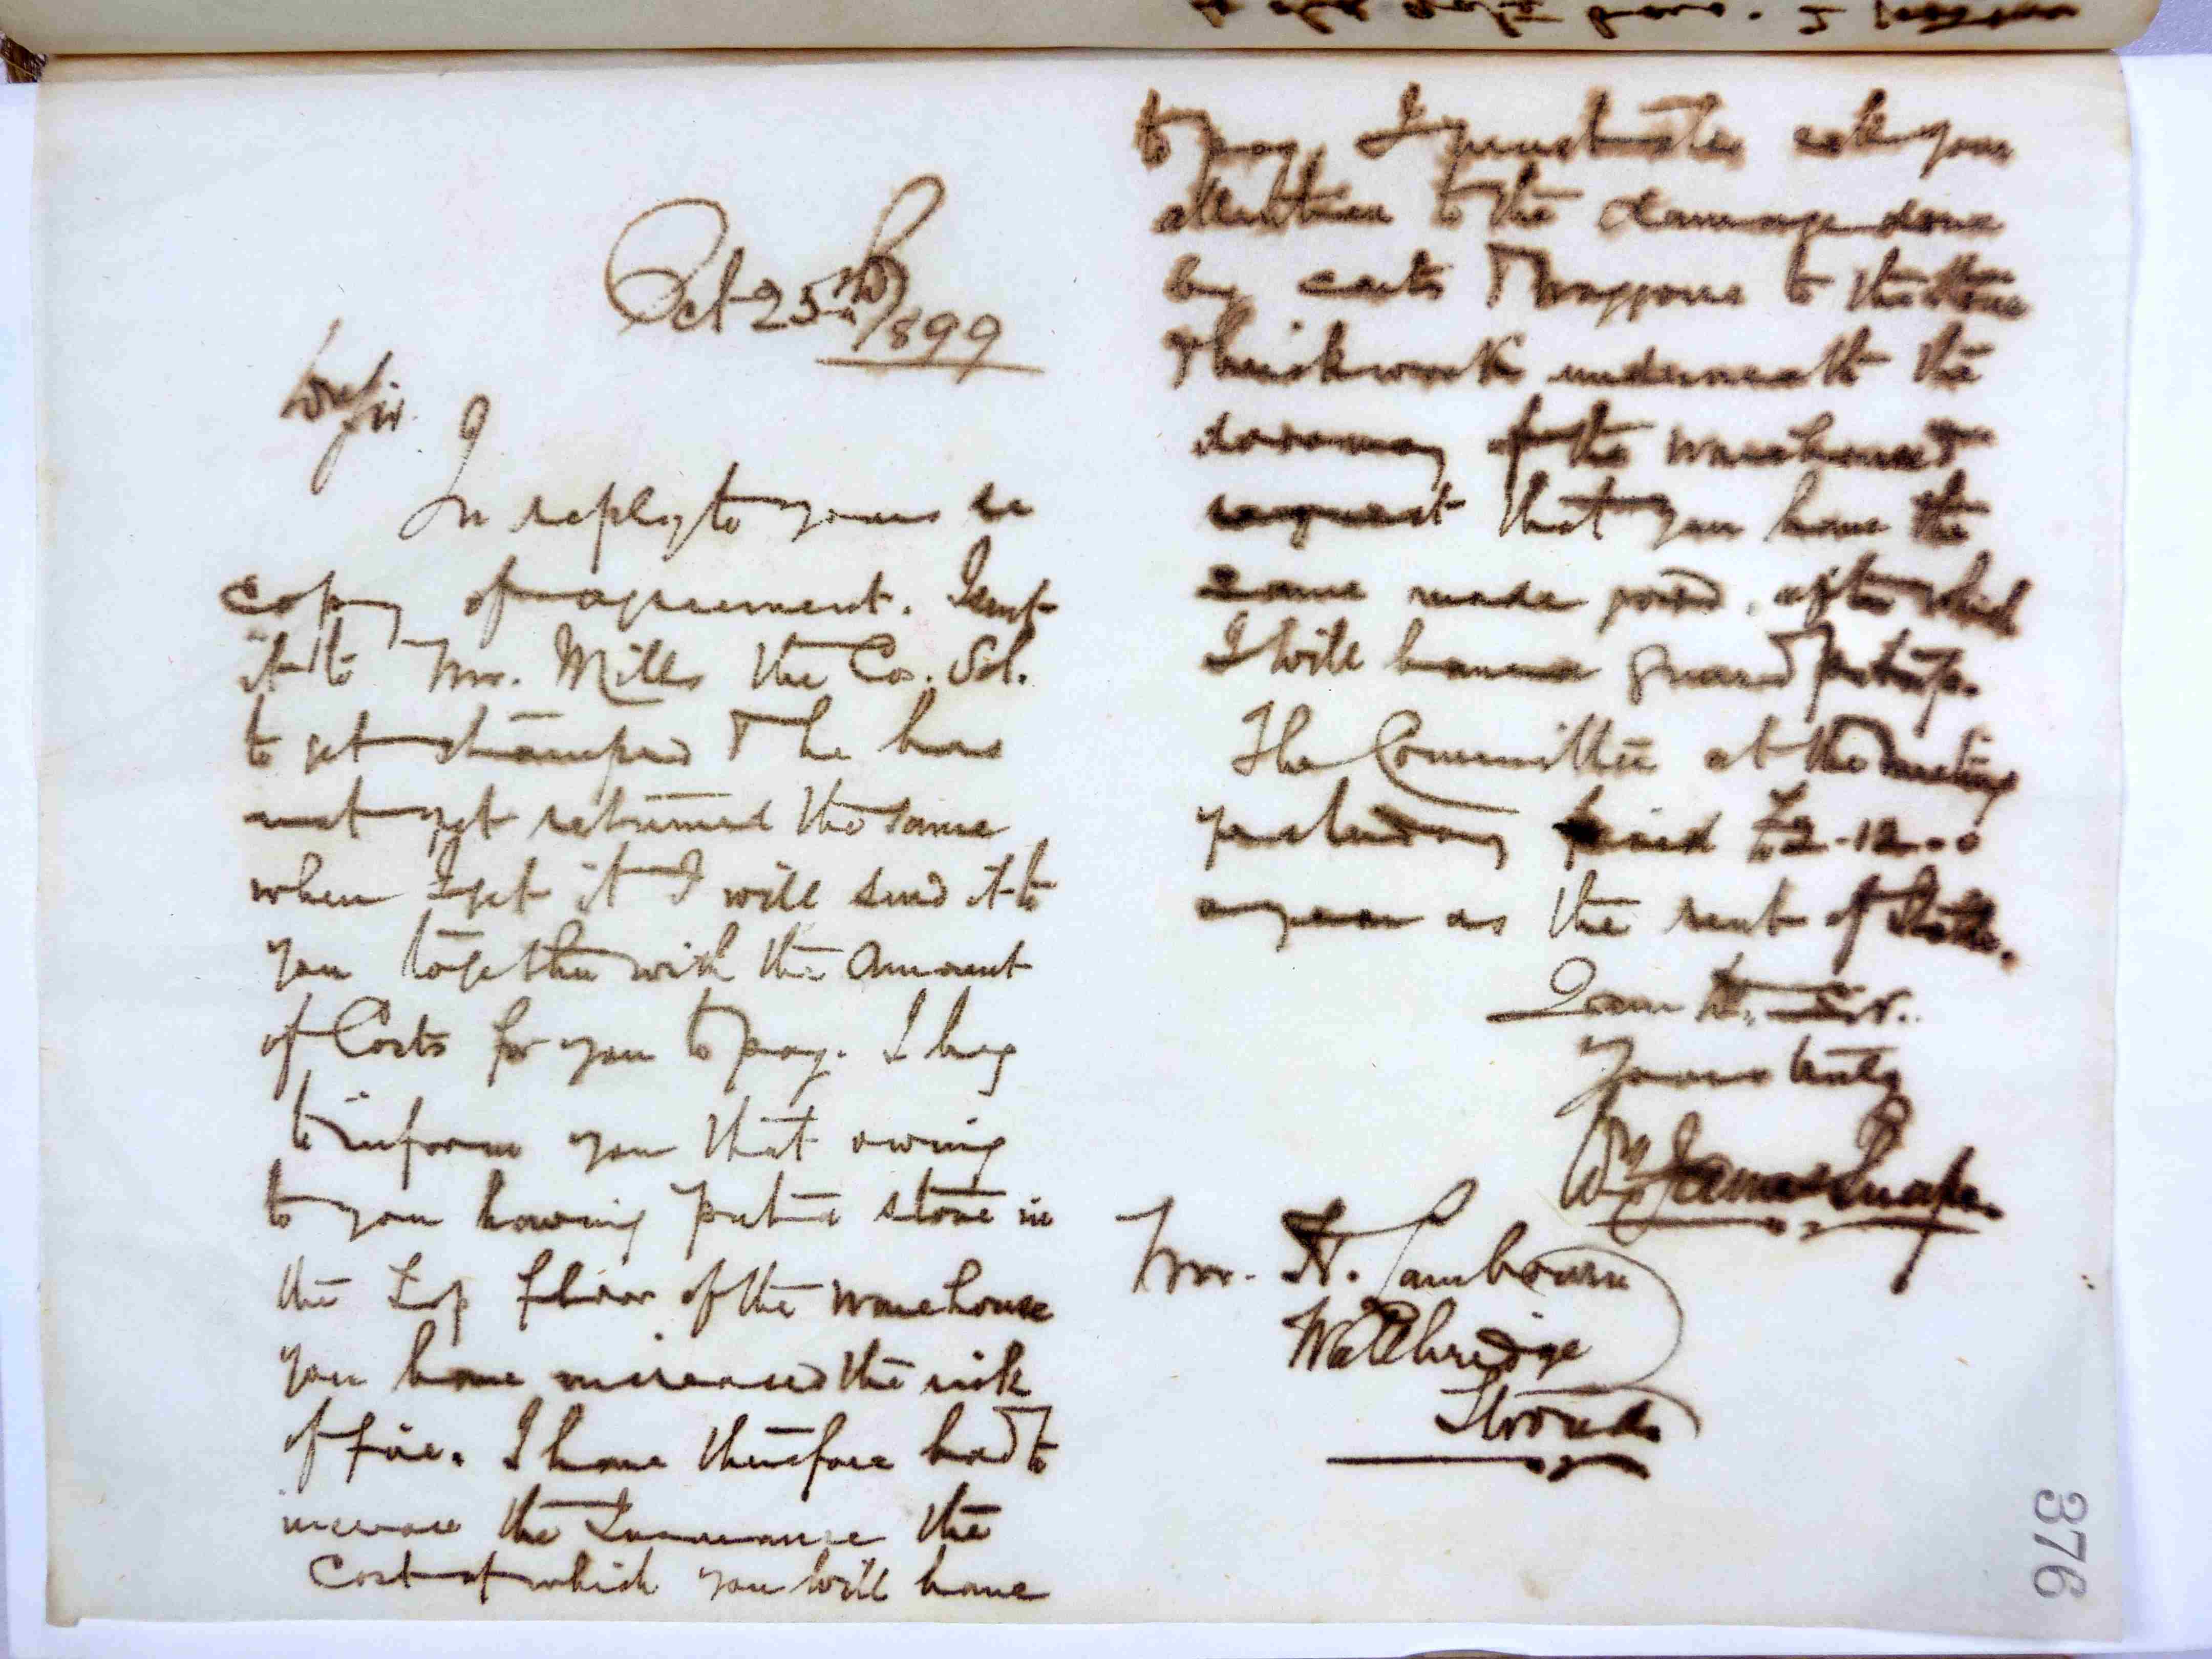 Oct 25th/1899
Dear Sir
In reply to yours re
copy of agreement. I sent
it to Mr. Mills the Co. Sol.
to get stamped & he has
not yet returned the same
when I get it I will send it to
you together with the amount
of Costs for you to pay. I beg
to inform you that owing
to you having put a stove in
the Top floor of the warehouse
you have increased the risk
of fire. I have therefore had to
increase the Insurance the
cost of which you will have
to pay, I must also call your
attention to the damage done
by carts & waggons to the stone
& brickwork underneath the
doorway of the warehouse &
request that you have the
same made good, after which
I will have a guard put up.
The Committee at the meeting
yesterday fixed £2-12-0
a year as the rent of Stable.
I am Dr. Sir.
Yours truly
Wm James Snape
Mr. H. Lambourn
Wallbridge
Stroud
376